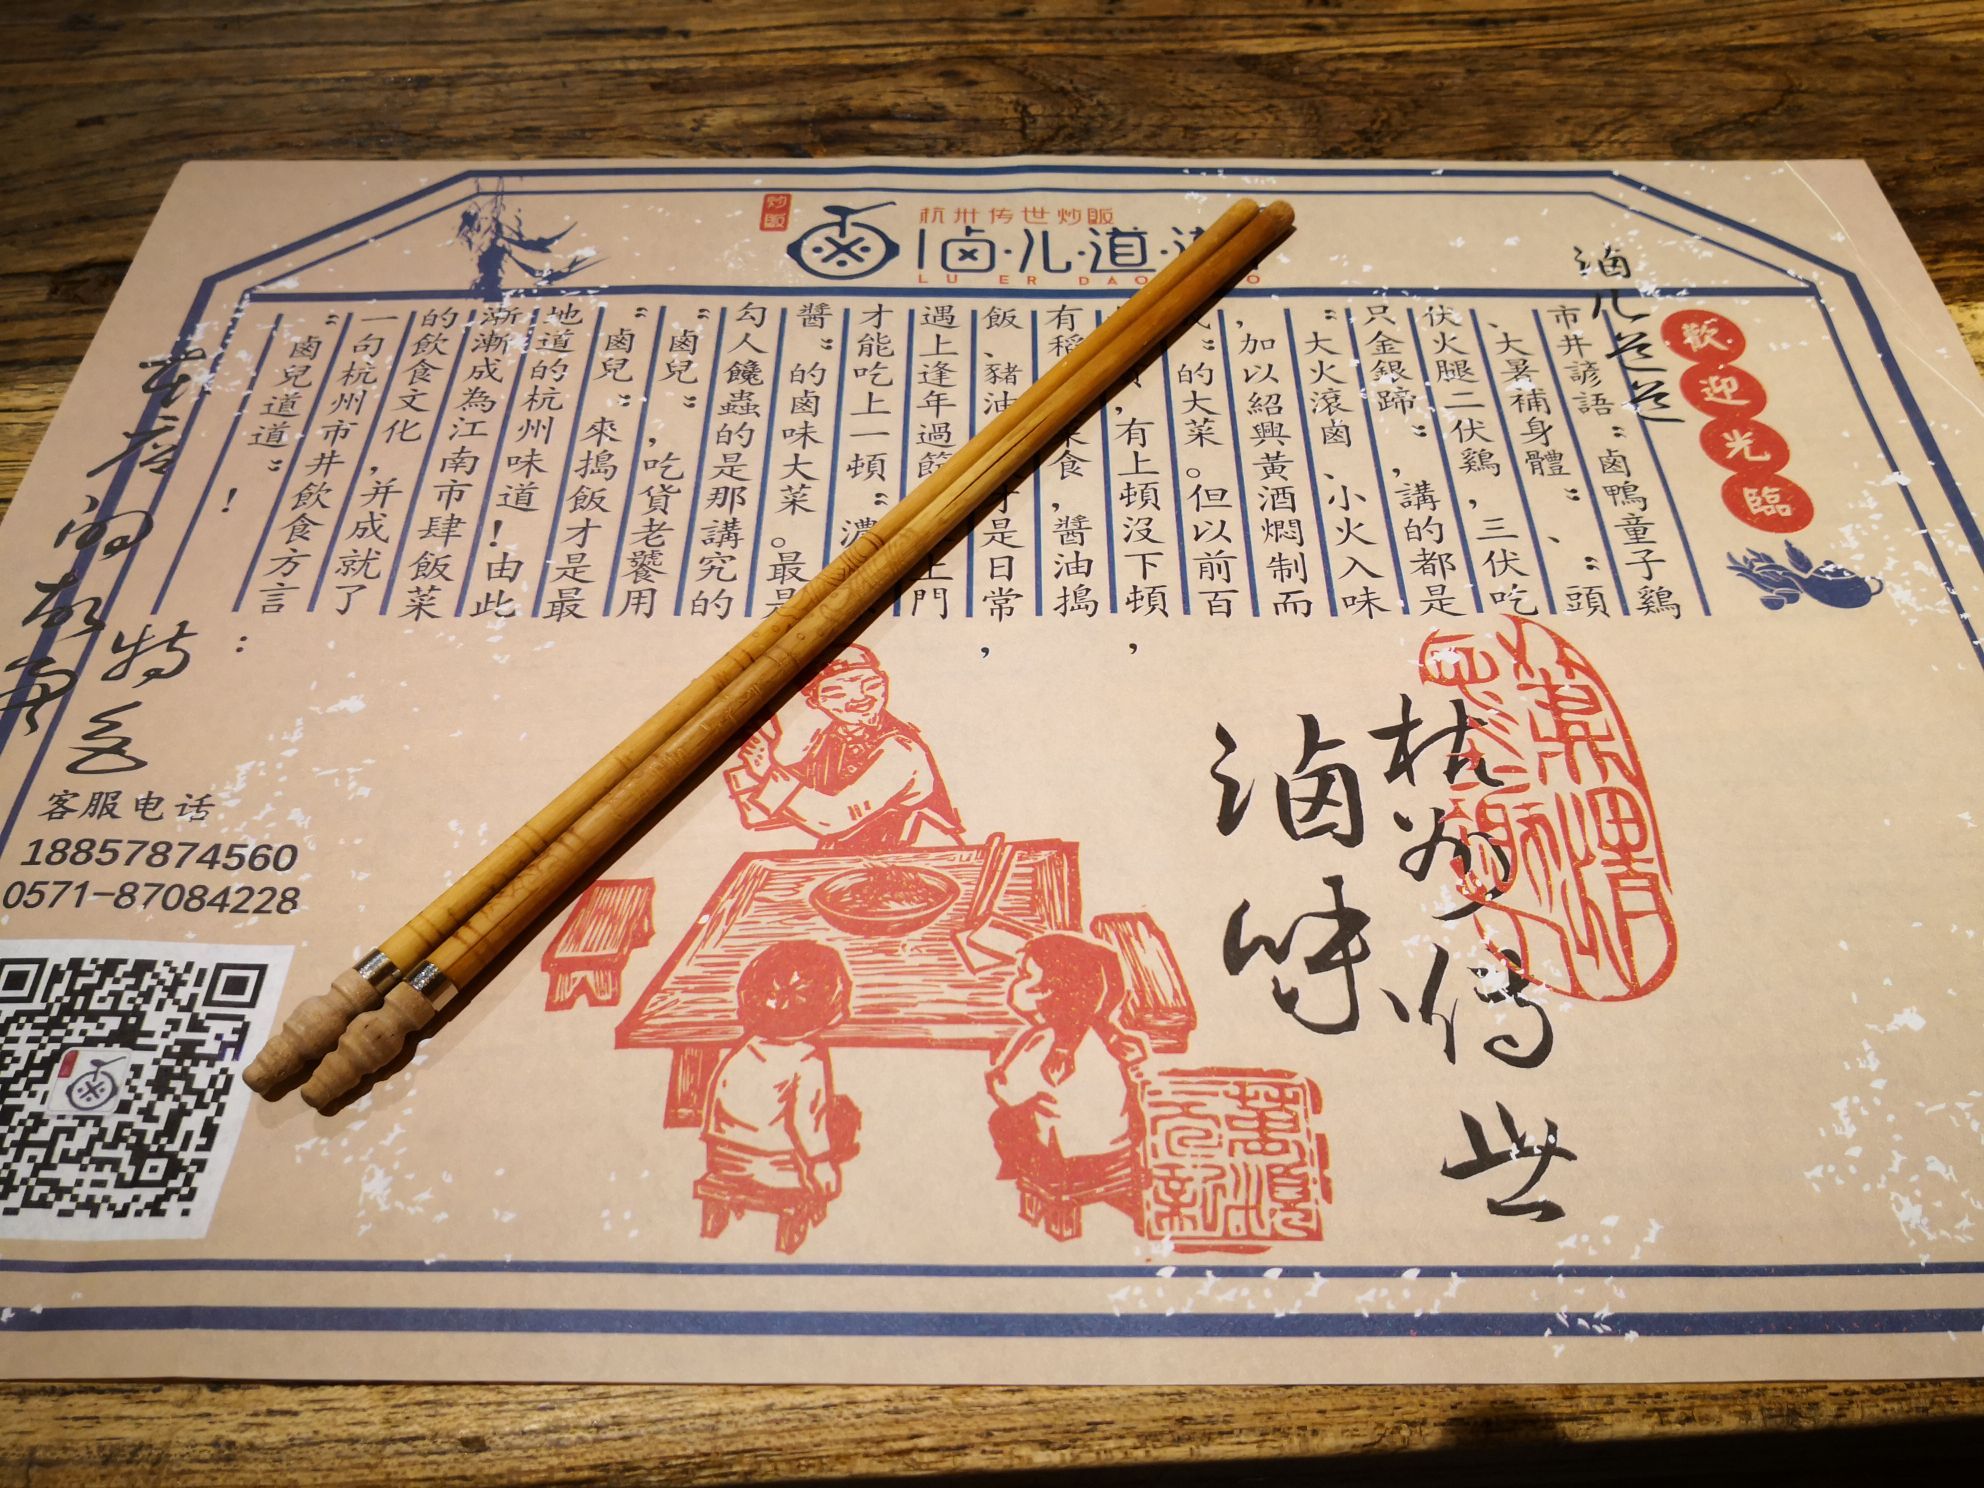 炒飯
杭州传世炒飯
卤·儿·道·道
LU ER DAO
歡迎光臨
滷儿道道
市井諺語：“鹵鴨童子鷄
、大暑補身體”、“頭
伏火腿二伏鷄，三伏吃
只金銀蹄”，講的都是
“大火滾鹵、小火入味
，加以紹興黃酒燜制而
”的大菜。但以前百
，有上頓沒下頓，
有稻 食，醬油搗
飯、豬油 才是日常，
遇上逢年過節 上門
才能吃上一頓“濃
醬”的鹵味大菜。最是
勾人饞蟲的是那講究的
“鹵兒”，吃貨老饕用
“鹵兒”來搗飯才是最
地道的杭州味道！由此
漸漸成為江南市肆飯菜
的飲食文化，并成就了
一句杭州市井飲食方言：
“鹵兒道道”！
杭州傳世
滷味
特色
客服电话
18857874560
0571-87084228